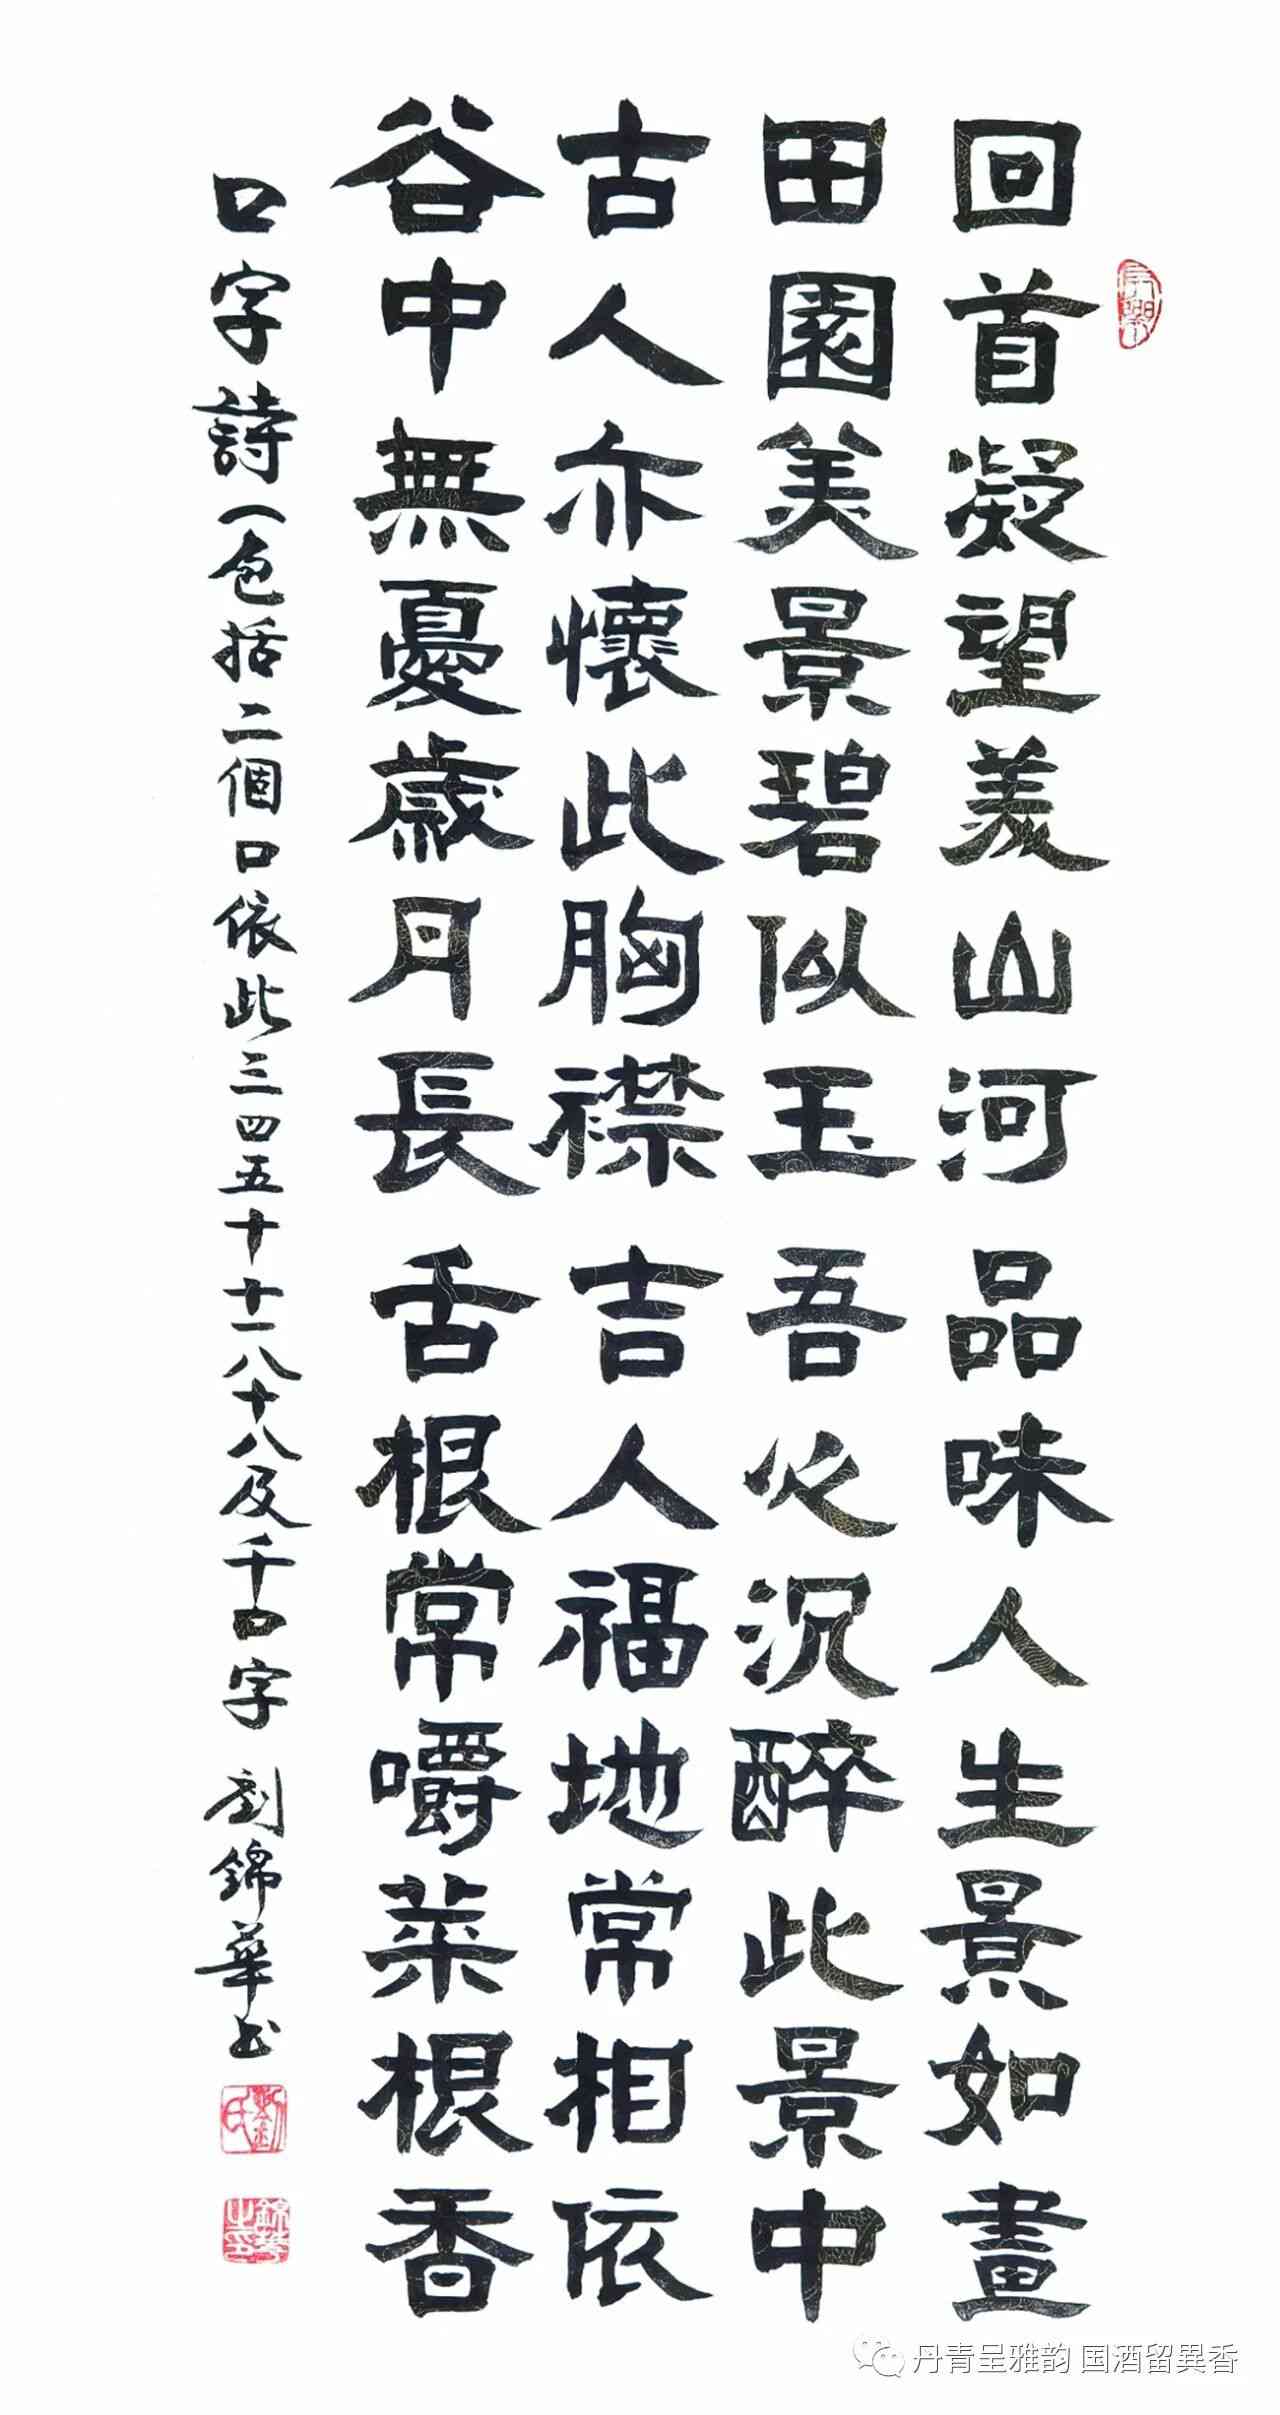 回首凝望美山河品味人生景如畫
田園美景碧似玉吾心沉醉此景中
古人亦懷此胸襟吉人福地常相依
谷中無憂歲月長舌根常嚼菜根香
口字詩（包括二個口依此三四五十十一八十八及千口字 劉錦華书
劉氏
錦華之印
丹青呈雅韵 国酒留異香